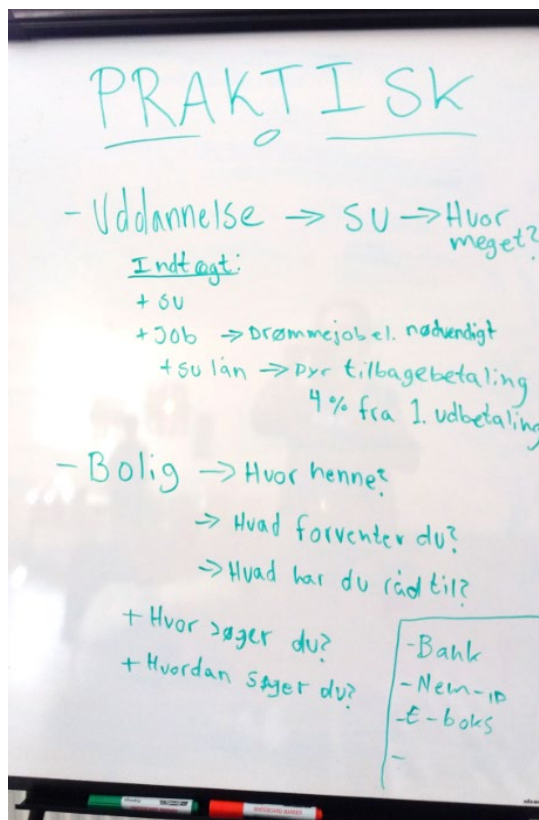 PRAKTISK
- Uddannelse → SU → Hvor
meget?
Indtægt:
+ SU
+ Job → Drømmejob el. nødvendigt
+ SU lån → Dyr tilbagebetaling
4% fra 1. udbetaling
- Bolig → Hvor henne?
→ Hvad forventer du?
→ Hvad har du råd til?
+ Hvor søger du?
+ Hvordan søger du?
- Bank
- Nem-ID
- E-boks
-